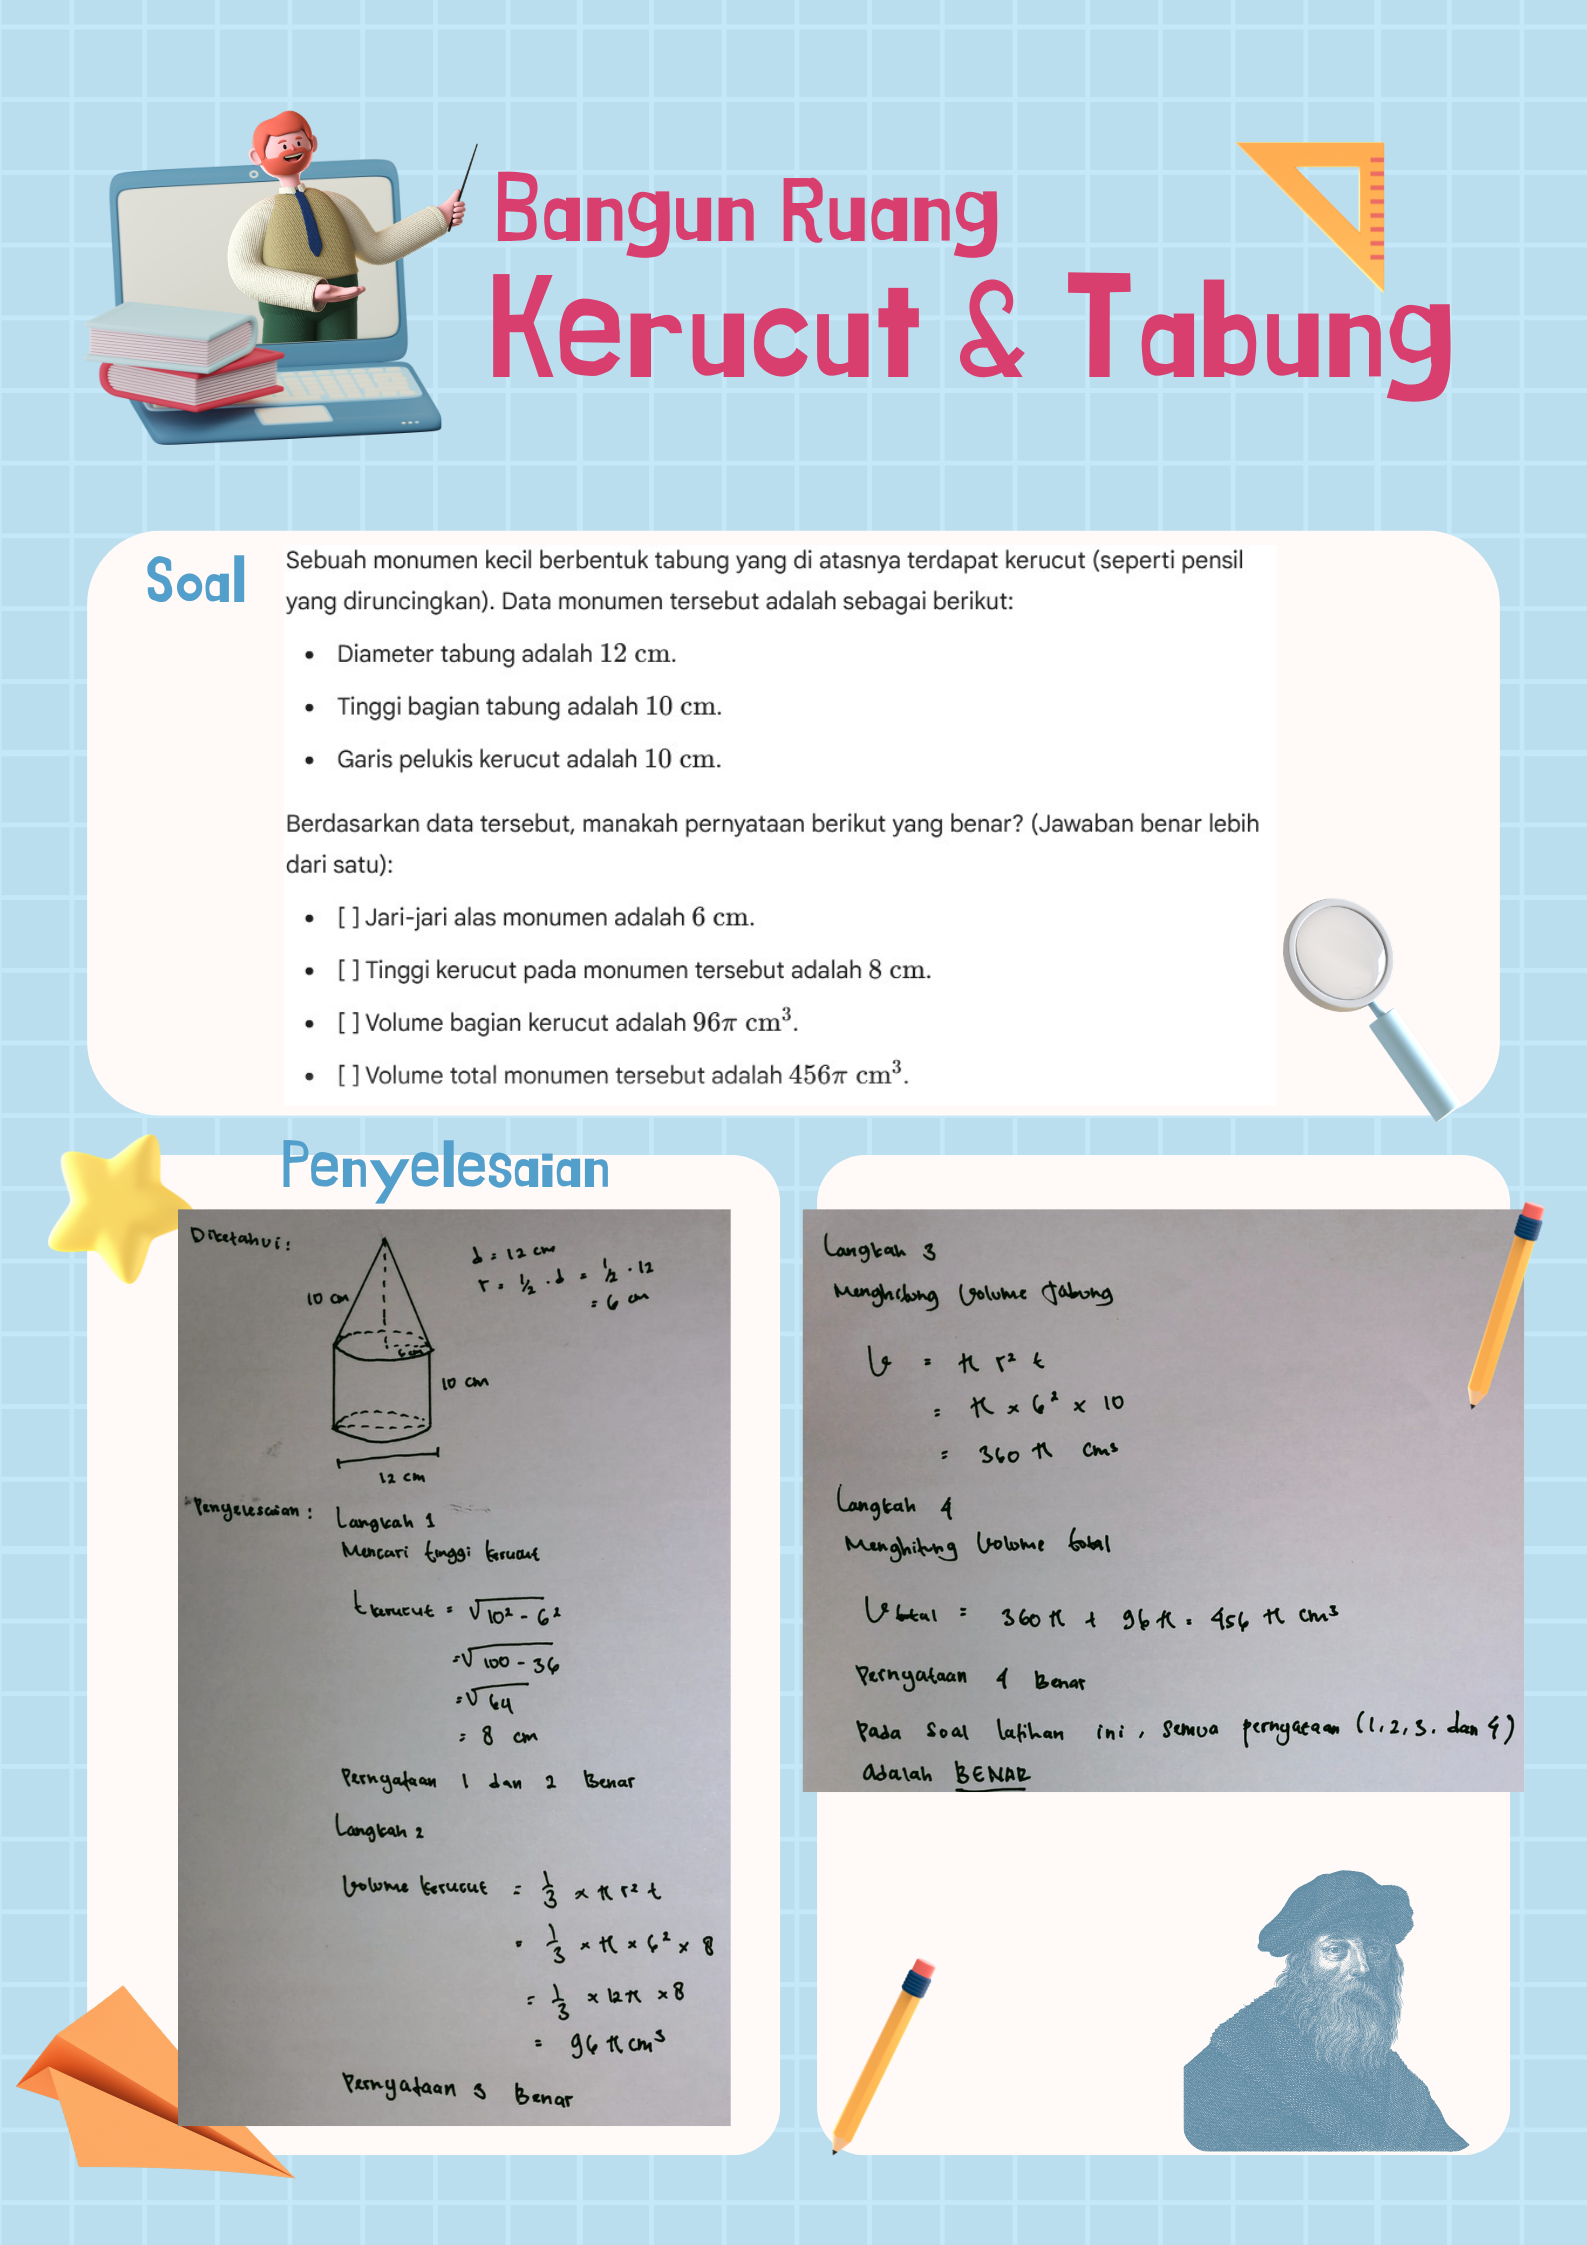 Bangun Ruang
Kerucut & Tabung
Soal
Sebuah monumen kecil berbentuk tabung yang di atasnya terdapat kerucut (seperti pensil
yang diruncingkan). Data monumen tersebut adalah sebagai berikut:
• Diameter tabung adalah 12 cm.
• Tinggi bagian tabung adalah 10 cm.
• Garis pelukis kerucut adalah 10 cm.
Berdasarkan data tersebut, manakah pernyataan berikut yang benar? (Jawaban benar lebih
dari satu):
• [ ] Jari-jari alas monumen adalah 6 cm.
• [ ] Tinggi kerucut pada monumen tersebut adalah 8 cm.
• [ ] Volume bagian kerucut adalah 96π cm³.
• [ ] Volume total monumen tersebut adalah 456π cm³.
Penyelesaian
Diketahui:
d = 12 cm
r = ½ · d = ½ · 12
= 6 cm
10 cm
6 cm
10 cm
12 cm
Penyelesaian :
Langkah 1
Mencari tinggi kerucut
t kerucut = √10² - 6²
= √100 - 36
= √64
= 8 cm
Pernyataan 1 dan 2 Benar
Langkah 2
Volume kerucut = 1/3 × π r² t
= 1/3 × π × 6² × 8
= 1/3 × 12π × 8
= 96 π cm³
Pernyataan 3 Benar
Langkah 3
Menghitung Volume Tabung
V = π r² t
= π × 6² × 10
= 360 π cm³
Langkah 4
Menghitung Volume total
V total = 360 π + 96 π = 456 π cm³
Pernyataan 4 Benar
Pada Soal latihan ini, semua pernyataan (1, 2, 3. dan 4)
adalah BENAR